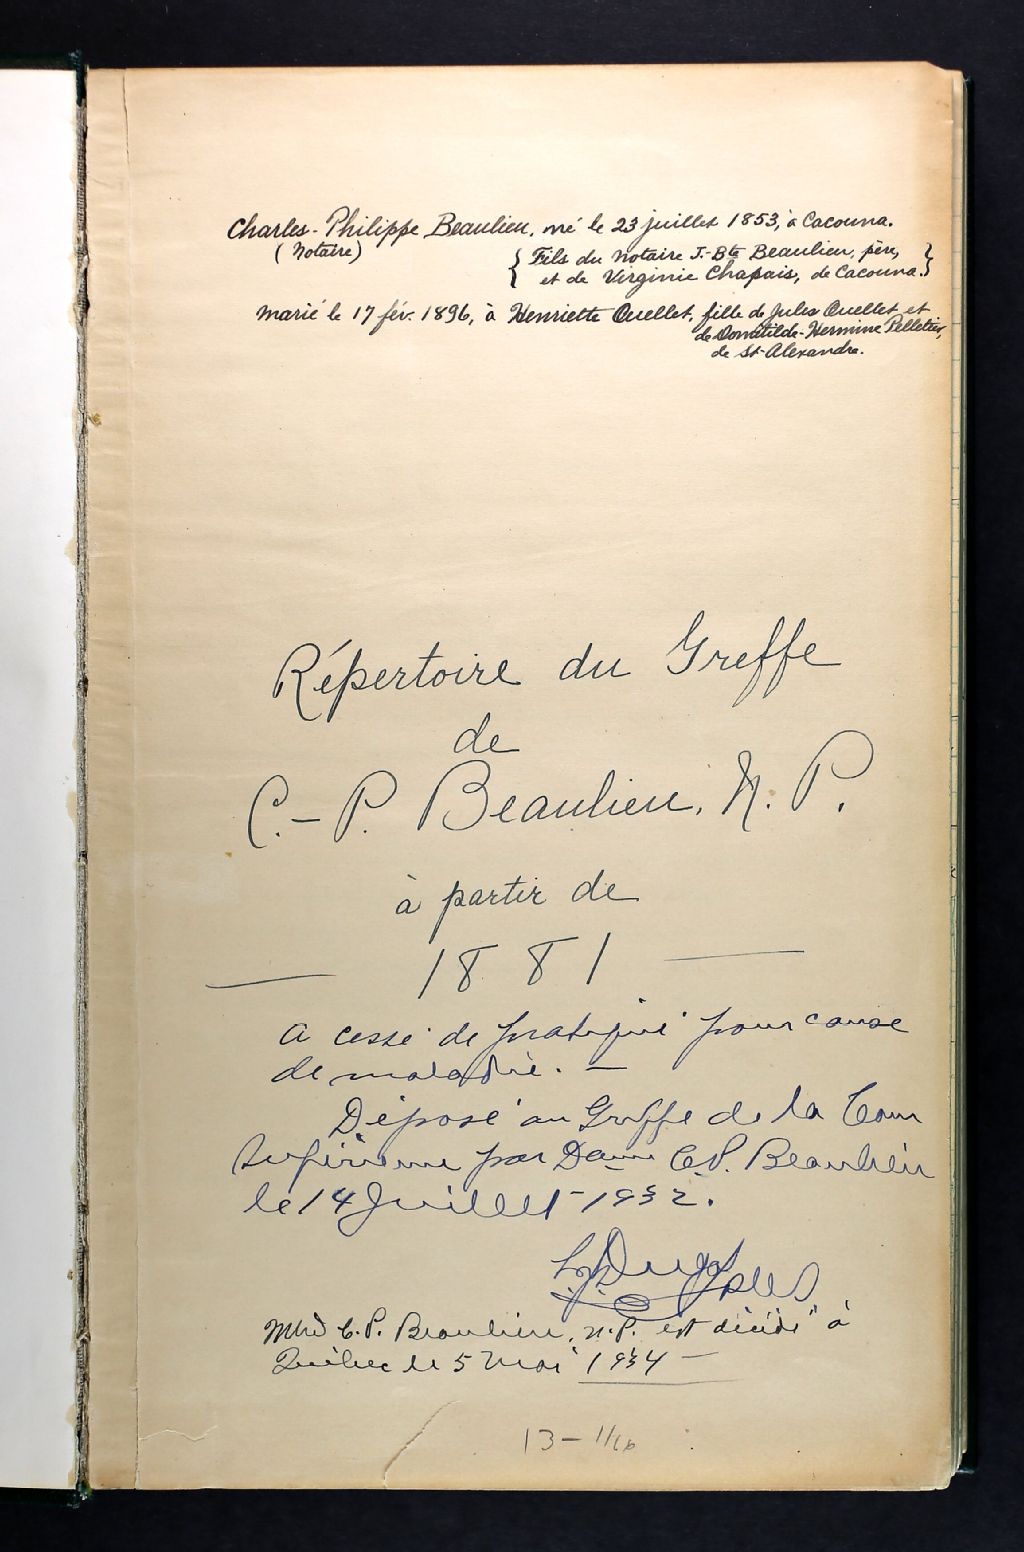 Charles-Philippe Beaulieu, né le 23 juillet 1853, à Cacouna.
(Notaire)
{ Fils du notaire J.-Bte Beaulieu, père,
et de Virginie Chapais, de Cacouna. }
marié le 17 fév. 1896, à Henriette Ouellet, fille de Jules Ouellet et
de Domitilde-Hermine Pelletier,
de St-Alexandre.
Répertoire du Greffe
de
C.-P. Beaulieu, N. P.
à partir de
— 1881 —
a cessé de pratiqué pour cause
de maladie. —
Déposé au Greffe de la Cour
Supérieure par Dame C.P. Beaulieu
le 14 Juillet 1932.
Mtre C. P. Beaulieu, N.P. est décédé à
Québec le 5 Mai 1934 —